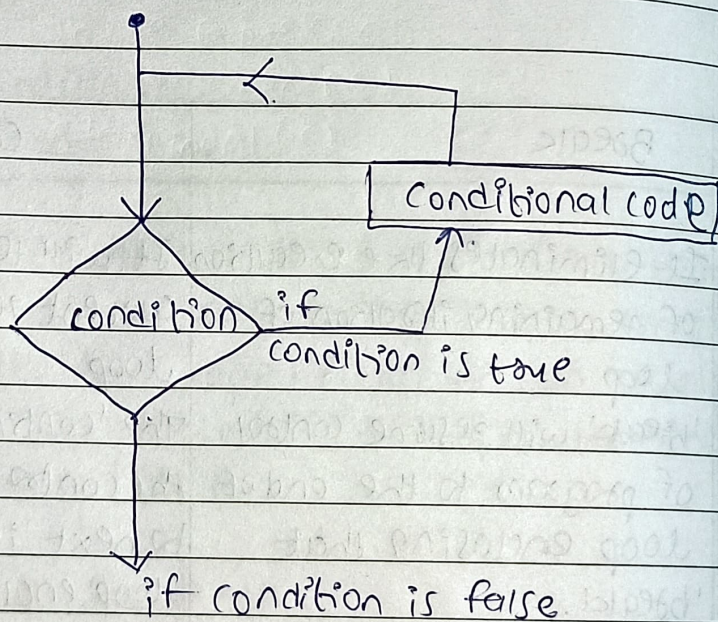 conditional code
condition
if
condition is true
if condition is false